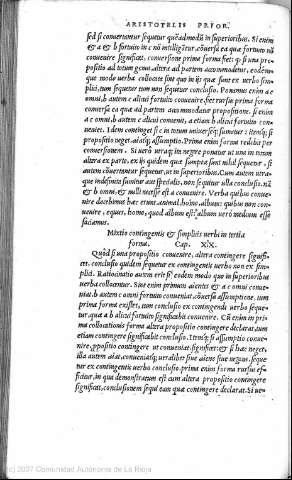 ARISTOTELIS PRIOR.
sed si convertentur sequetur quẽadmodũ in superioribus. Si enim
& a & b fortuito in c nõ intelligãtur, cõversa ea quæ fortuito nõ
convenire significãt, conversione prima forma fiet: q̃ si una pro-
positio ad totum genus altera ad partem accommodetur, eodem-
que modo verba collocata sint quo in ijs quæ sunt ex verbo sim-
plici, tum sequetur tum non sequetur conclusio. Ponimus enim a c
omni, b autem c alicui fortuito convenire, fiet rursus prima forma
conversa ea quæ ad partem aut modatur propositione. si enim
a c omni, b autem c alicui convenit, a etiam b alicui fortuito con-
veniet. Idem continget si c in totum universũq́; sumetur : itemq́; si
propositio neget, aiatq́; assumptio. Prima enim forma reddis per
conversionem. Si verò utraq́; in negãte ponatur ut una in totum
altera ex parte, ex ijs quidem quæ sumpta sunt nihil sequetur, si
autem cõvertentur sequetur, ut in superioribus. Cum autem utra-
que indefinite sumitur aut specialis, non sequitur ulla conclusio. nã
& b omni, & nulli necesse est a convenire. Verba quibus conve-
nire docebimus hæc erunt animal, homo, album: quibus non con-
venire, equus, homo, quod album est: album verò medium esse
faciamus.
Mixtio contingentis & simplicis verbi in tertia
forma. Cap. XIX.
Quòd si una propositio convenire, altera contingere signifi-
cet, conclusio quidem sequetur ex contingenti verbo non ex sim-
plici. Ratiocinatio autem erit q̃ eodem modo quo in superioribus
verba collocantur. Sint enim primum aientes & a c omni conve-
niat, b autem c omni fortuito conveniat, cõversa assumptione, cum
prima forma existet, tum conclusio ex contingendi verbo seque-
tur, quæ a b alicui fortuito significabit convenire. Cũ enim in pri-
ma collocationis forma altera propositio contingere declarat, tum
etiam contingere significabit conclusio. Itemq́; si assumptio conve-
nire, propositio contingere ut conveniat, significet: & si hæc neget,
illa autem aiat, conveniatq́; veraliter sive aiens sive negans, seque-
tur ex contingentis verbi conclusio. prima enim forma rursus ef-
ficitur, in qua demonstratum est cum altera propositio contingere
significat, conclusionem sequi eam quæ contingere declarat. Si ve-
(c) 2007 Comunidad Autónoma de La Rioja